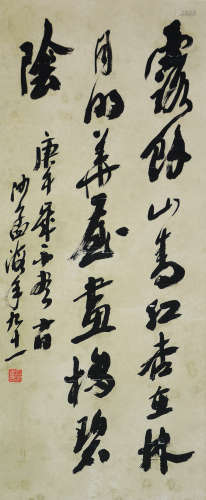 露餘山青紅杏在林
月明華屋畫橋碧
陰
庚午
沙孟海年九十一